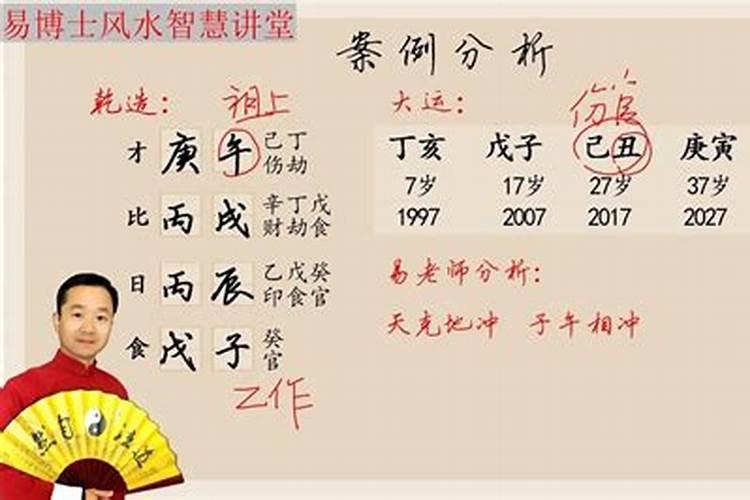 易博士风水智慧讲堂
案例分析
乾造： 祖上
才 庚 午 己丁
伤劫
比 丙 戌 辛丁戊
财劫食
日 丙 辰 乙戊癸
印食官
食 戊 子 癸
官
工作
大运： 伤官
丁亥 戊子 己丑 庚寅
7岁 17岁 27岁 37岁
1997 2007 2017 2027
易老师分析：
天克地冲 子午相冲